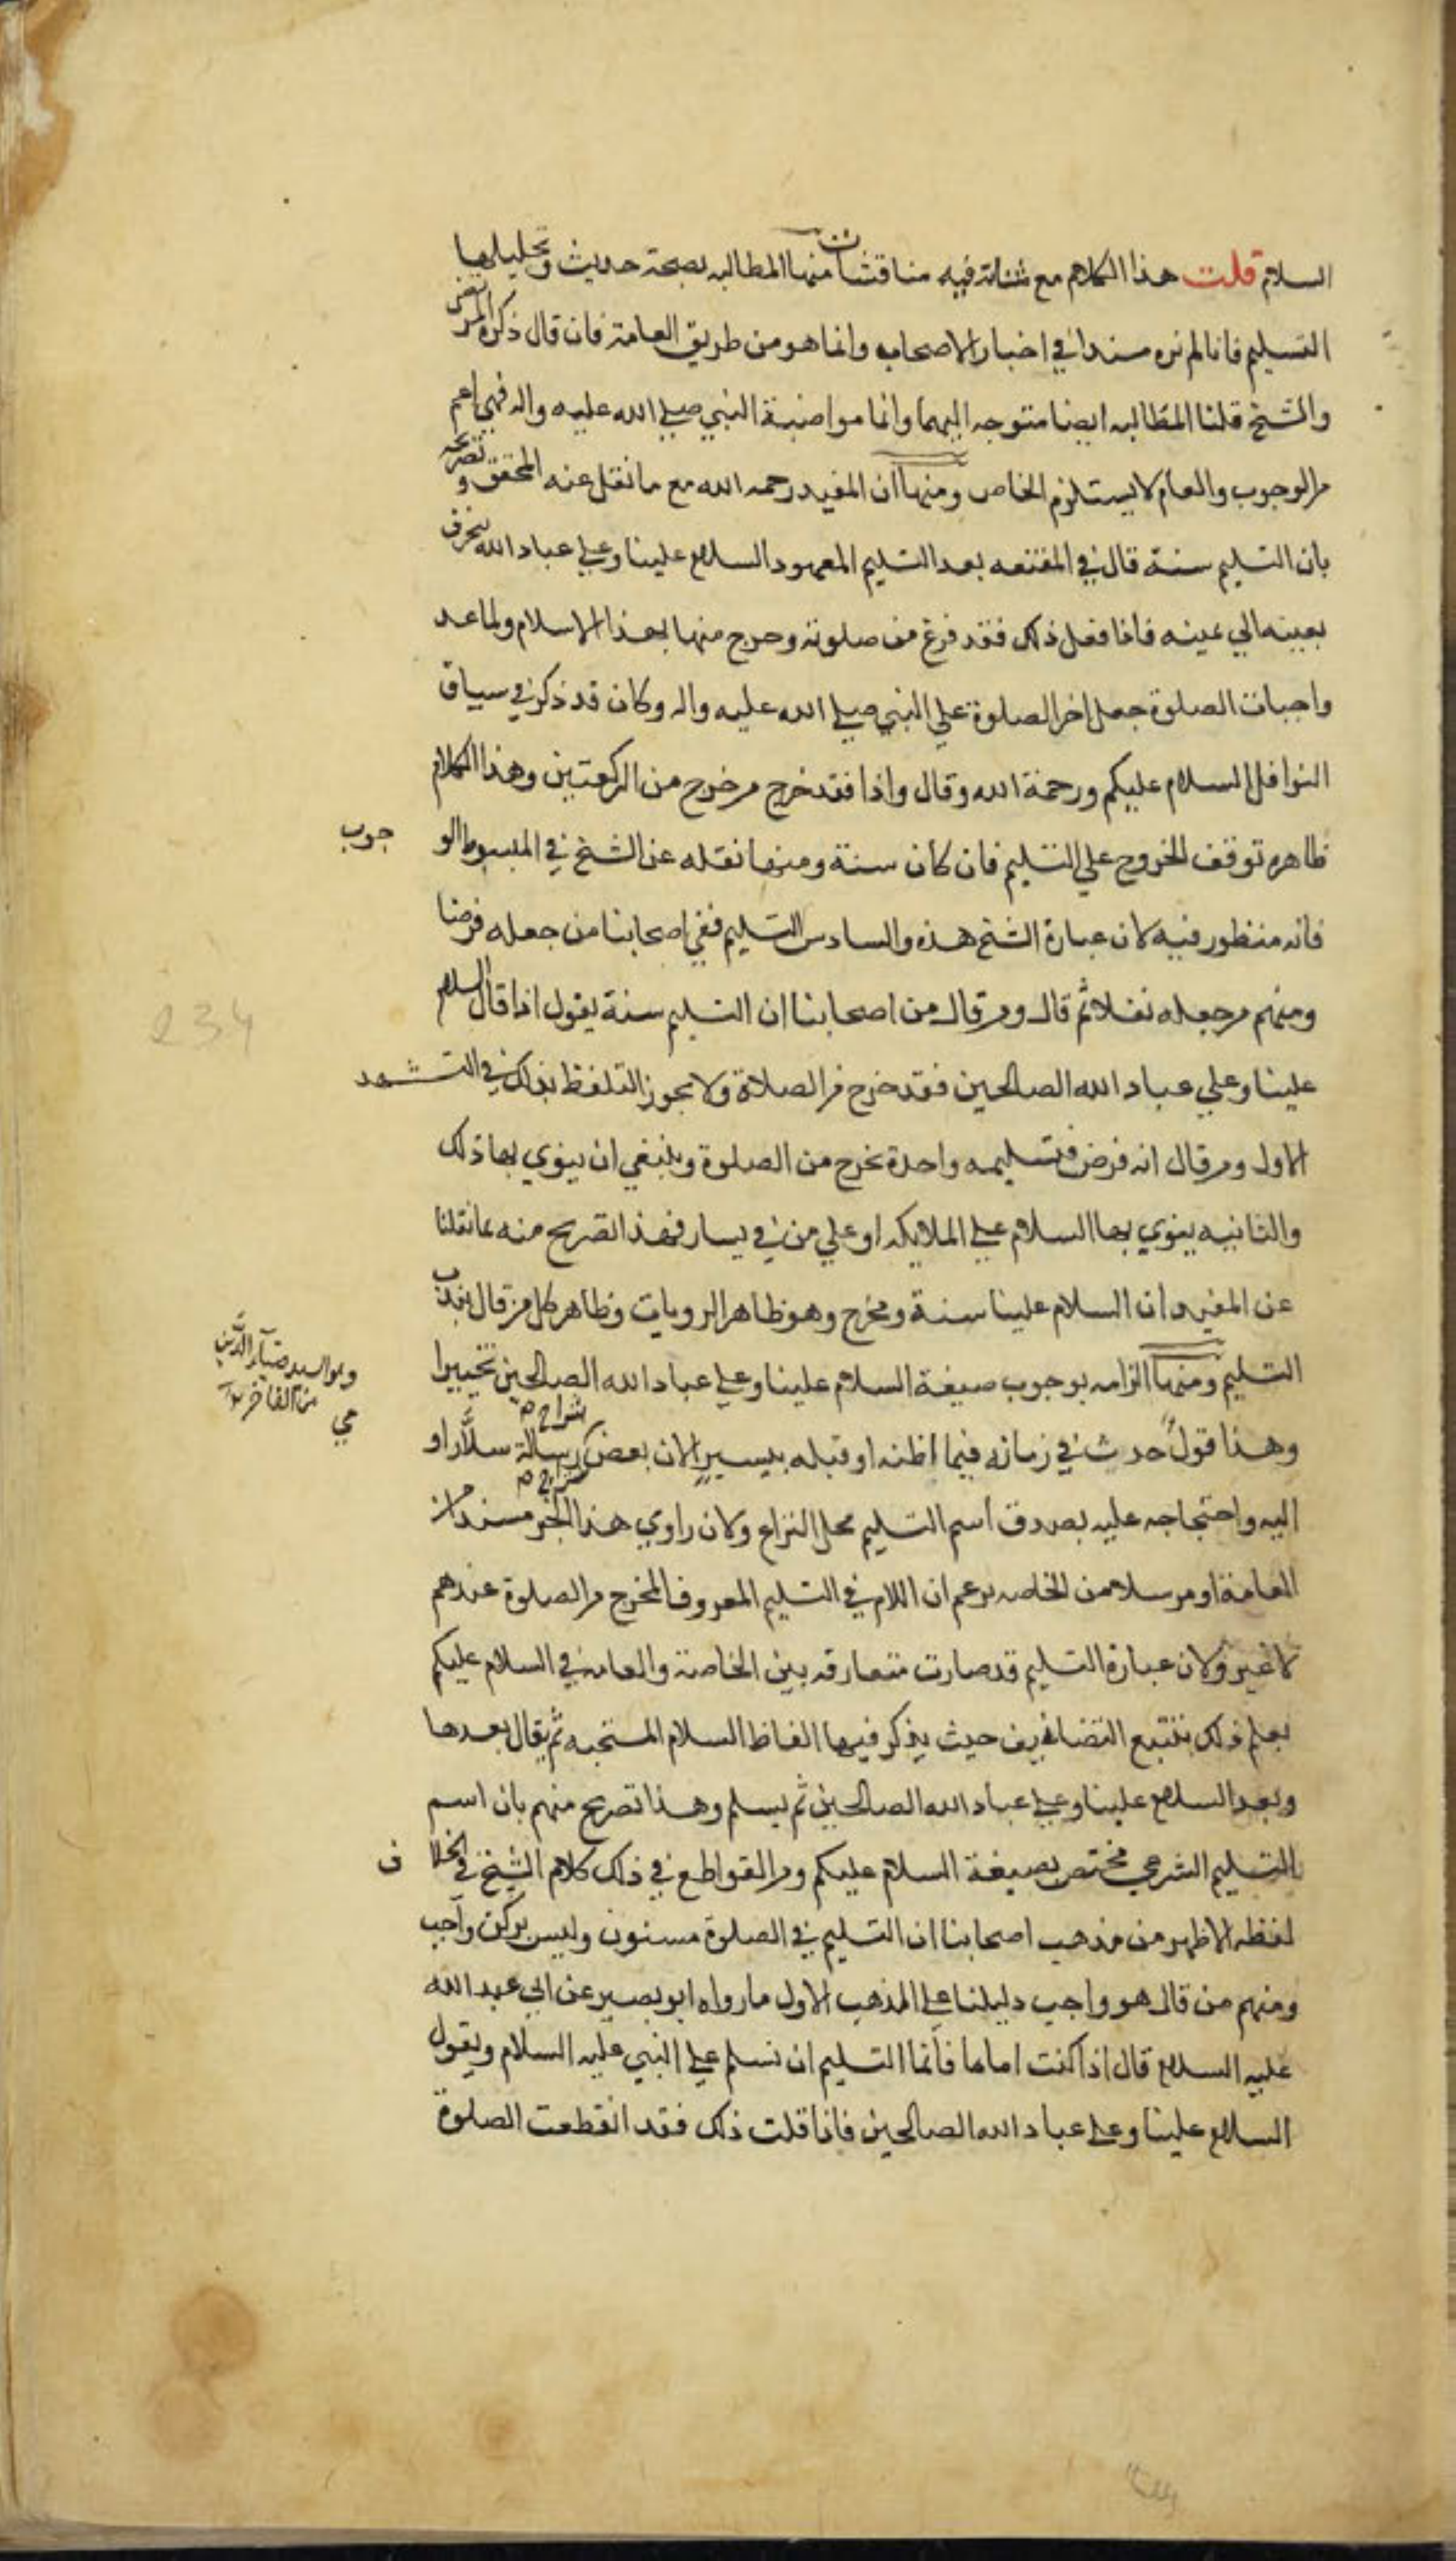 السلام قلت هذا الكلام مع متانته فيه مناقشات منها المطالبه بصحة حديث وتحليلها
التسليم فانا لم نره مسندا في اخبار الاصحاب وانما هو من طريق العامة فان قال ذكره المرتضى
والشيخ قلنا المطالبه ايضا متوجه اليهما وانما مواضبة النبي صلى الله عليه واله فهي اعم
من الوجوب والعام لا يستلزم الخاص ومنها ان المفيد رحمه الله مع ما نقل عنه المحقق وتصريحه
بان التسليم سنة قال في المقنعه بعد التسليم المعهود السلام علينا وعلى عباد الله ينحرف
بعينه الي يمينه فاذا فعل ذلك فقد فرغ من صلوته وخرج منها بهذا الاسلام ولما عد
واجبات الصلوة جعل اخر الصلوة علي النبي صلى الله عليه واله وكان قد ذكر في سياق
النوافل السلام عليكم ورحمة الله وقال واذا فقد خرج من خرج من الركعتين وهذا الكلام
ظاهره توقف الخروج علي التسليم فان كان سنة ومنها نقله عن الشيخ في المبسوط الو جوب
فانه منظور فيه لان عبارة الشيخ هذه والسادس التسليم ففي اصحابنا من جعله فرضا
ومنهم من جعله نفلا ثم قال ومن قال من اصحابنا ان التسليم سنة يقول اذا قال السلام
علينا وعلي عباد الله الصالحين فقد خرج من الصلاة ولا يجوز التلفظ بذلك في التشهد
الاول ومن قال انه فرض فتسليمه واحدة تخرج من الصلوة وينبغي ان ينوي بها ذلك
والثانيه ينوي بها السلام على الملايكه او علي من في يسار فهذا تصريح منه بما نقلنا
عن المفيد وان السلام علينا سنة ومخرج وهو ظاهر الرويات وظاهر كل من قال بندب
التسليم ومنها الزامه بوجوب صيغة السلام علينا وعلى عباد الله الصالحين تخييرا
وهو السيد ضياء الدين
من الفاخر
وهذا قول حدث في زمانه فيما اظنه او قبله بيسير لان بعض شراح رسالة سلار او
اليه واحتجاجه عليه بصدق اسم التسليم محل النزاع ولان راوي هذا الخبر مسندا من
العامة او مرسلا من الخاصه يزعم ان اللام في التسليم المعروف المخرج من الصلوة عندهم
لا غير ولان عبارة التسليم قد صارت متعارفه بين الخاصة والعامه في السلام عليكم
يعلم ذلك بتتبع التضانيف حيث يذكر فيها الفاظ السلام المستحبه ثم يقال بعدها
وبعد السلام علينا وعلى عباد الله الصالحين ثم يسلم وهذا تصريح منهم بان اسم
التسليم الشرعي مختص بصيغة السلام عليكم ومن القواطع في ذلك كلام الشيخ في الخلا ف
لفظه الاظهر من مذهب اصحابنا ان التسليم في الصلوة مسنون وليس بركن واجب
ومنهم من قال هو واجب دليلنا على المذهب الاول ما رواه ابو بصير عن ابي عبد الله
عليه السلام قال اذا كنت اماما فانما التسليم ان تسلم على النبي عليه السلام ويقول
السلام علينا وعلى عباد الله الصالحين فاذا قلت ذلك فقد انقطعت الصلوة
234